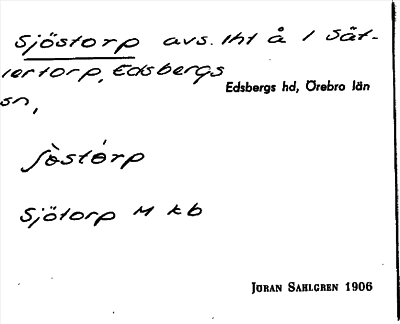 Sjöstorp avs. lht å 1 Sät-
tertorp, Edsbergs
Edsbergs hd, Örebro län
sn,
Sjötorp M kb
JÖRAN SAHLGREN 1906